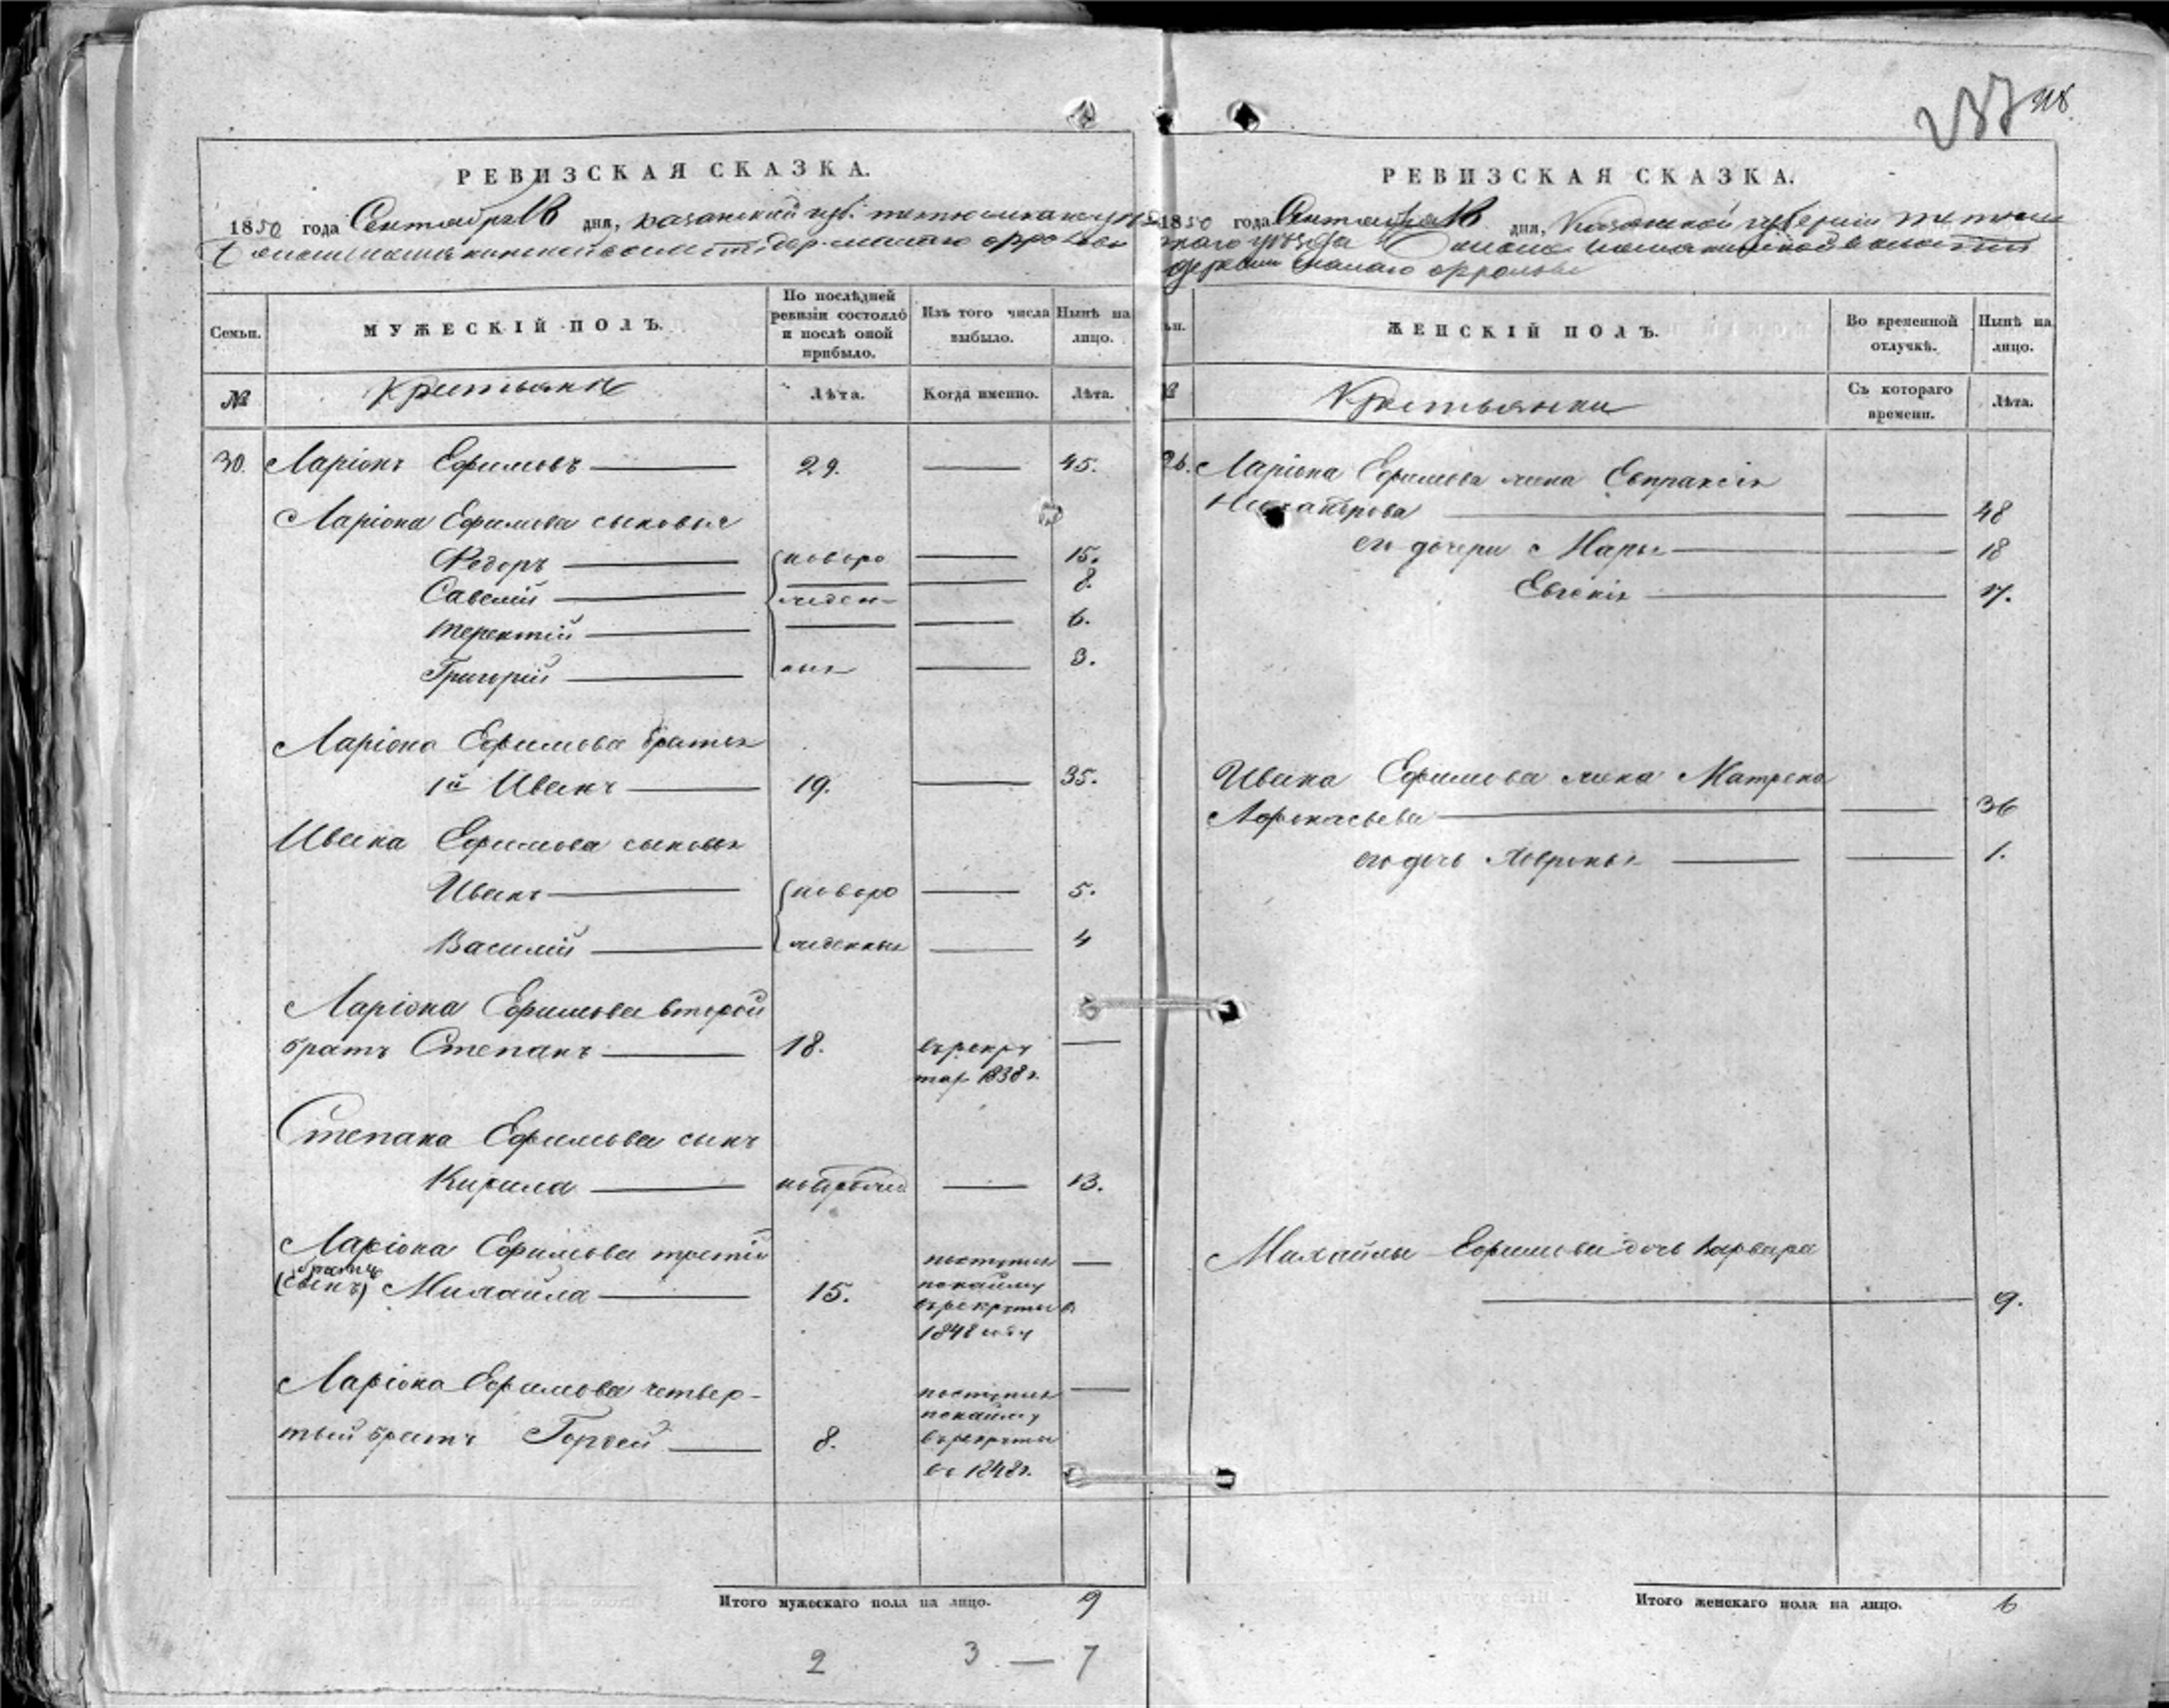 РЕВИЗСКАЯ СКАЗКА.
1850 года Сентября 18 дня, Казанской губ.
МУЖЕСКІЙ ПОЛЪ.
Семьи.
По послѣдней ревизіи состояло и послѣ оной прибыло.
Изъ того числа выбыло.
Нынѣ на лицо.
№
Крестьяне
Лѣта.
Когда именно.
Лѣта.
30. Ларіонъ Ефимовъ 29. 45.
Ларіона Ефимова сыновья
Федоръ новоро 15.
Савелій жден- 8.
Терентій 6.
Григорій ныя 3.
Ларіона Ефимова братья
1й Иванъ 19. 35.
Ивана Ефимова сыновья
Иванъ новоро 5.
Василій жденныя 4
Ларіона Ефимова второй
братъ Степанъ 18. въ рекру
1838г.
Степана Ефимова сынъ
Кирила 13.
Ларіона Ефимова третій
братъ
(сынъ) Михайла 15. поступил
по найму
въ рекруты в
1848 году
Ларіона Ефимова четвер-
тый братъ Гордей 8. поступил
по найму
въ рекруты
в 1848г.
Итого мужескаго пола на лицо. 9
2 3 — 7
РЕВИЗСКАЯ СКАЗКА.
1850 года Сентября 18 дня, Казанской губерніи Тетюш
скаго уѣзда волости
деревни
ЖЕНСКІЙ ПОЛЪ.
Во временной отлучкѣ.
Нынѣ на лицо.
Крестьянки
Съ котораго времени.
Лѣта.
Ларіона Ефимова жена Евпраксія
48
его дочери Марья 18
Евгенія 17.
Ивана Ефимова жена Матрена
Афонасьева 36
его дочь 1.
Михайлы Ефимова дочь Варвара
9.
Итого женскаго пола на лицо. 6